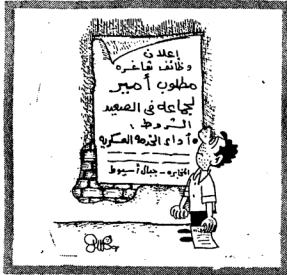 إعلان
وظائف شاغره
مطلوب أمير
لجماعه فى الصعيد
الشروط :
أداء الخدمة العسكريه
المخابره - جبال أسيوط